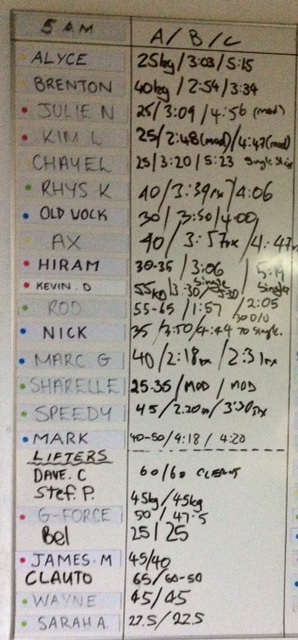 5 AM A / B / C
ALYCE 25kg / 3:03 / 5:15
BRENTON 40kg / 2:54 / 3:34
JULIE N 25 / 3:09 / 4:56 (mod)
KIM L 25 / 2:48 (mod) / 4:47 (mod)
CHAYEL 25 / 3:20 / 5:23 Single
RHYS K 40 / 3:39rx / 4:06
OLD VOCK 30 / 3:50 / 4:00
AX 40 / 3:57rx / 4:47rx
HIRAM 30-35 / 3:06 / 5:19
KEVIN.D 55kg / 3:30 / 5:30 Single Singles
ROD 55-65 / 1:57 / 2:05
NICK 35 / 3:50 / 4:44 30 D/U to Single.
MARC G 40 / 2:18rx / 2:31rx
SHARELLE 25-35 / MOD / MOD
SPEEDY 45 / 2:20rx / 3:30rx
MARK 40-50 / 4:18 / 4:20
LIFTERS
DAVE.C 60 / 60 CLEANS
Stef.P. 45kg / 45kg
G-FORCE 50 / 47.5
Bel 25 / 25
JAMES.M 45/40
CLAUTO 65 / 60-50
WAYNE 45 / 45
SARAH A. 27.5 / 22.5